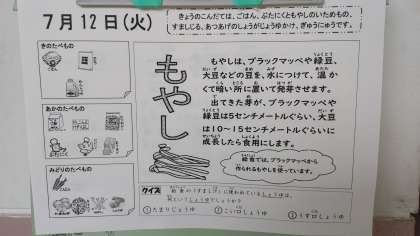 7月12日(火)
きょうのこんだては、ごはん、ぶたにくともやしのいためもの、
すましじる、あつあげのしょうがじょうゆかけ、ぎゅうにゅうです。
きのたべもの
あかのたべもの
みどりのたべもの
もやし
もやしは、ブラックマッペや緑豆、
大豆などの豆を、水につけて、温か
くて暗い所に置いて発芽させます。
出てきた芽が、ブラックマッペや
緑豆は5センチメートルぐらい、大豆
は10～15センチメートルぐらいに
成長したら食用にします。
給食では、ブラックマッペから
作られるもやしを使っています。
クイズ
給食の「すましじる」に使われているしょうゆは、
何というしょうゆでしょうか?
①たまりじょうゆ ②こい口しょうゆ ③うす口しょうゆ